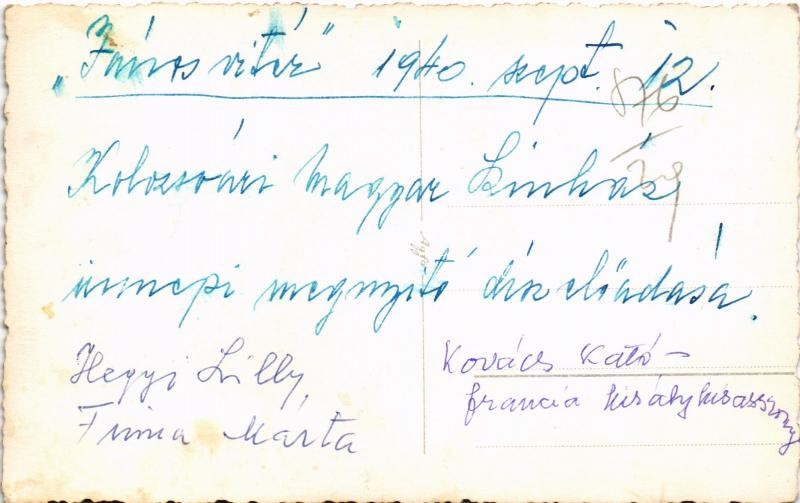 „János vitéz" 1940. szept. 12.
876/29
Kolozsvári Magyar Szinház
ünnepi megnyitó disz előadása.
Hegyi Lilly,
Márta
Kovács Kató –
francia királykisasszony